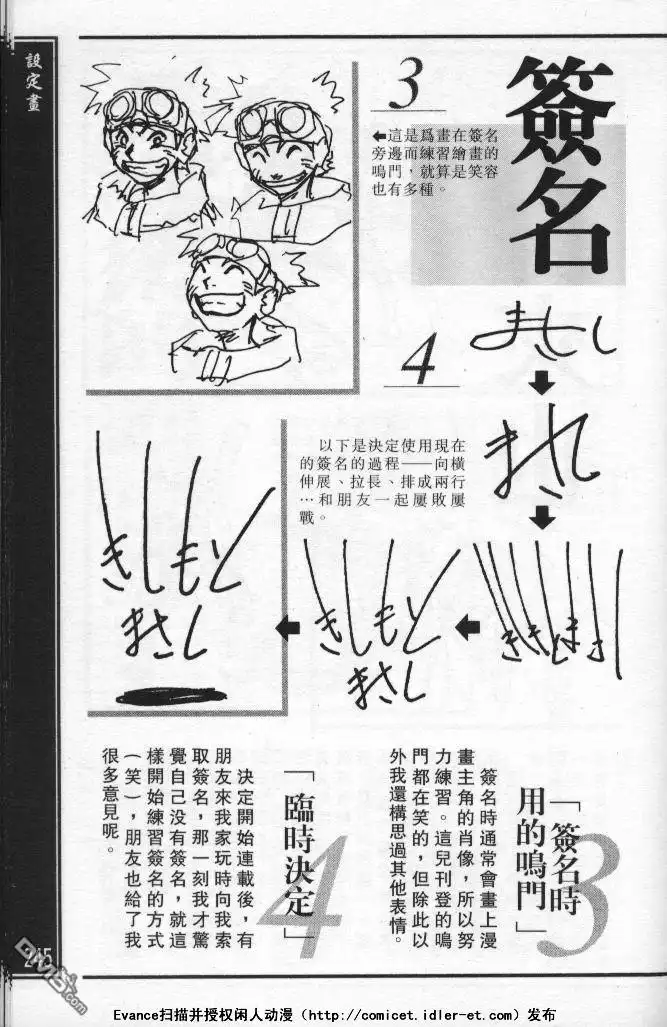 設定畫
簽名
3
←這是爲畫在簽名
旁邊而練習繪畫的
鳴門，就算是笑容
也有多種。
4
まさし
まさし
以下是決定使用現在
的簽名的過程——向橫
伸展、拉長、排成兩行
…和朋友一起屢敗屢
戰。
きしもと
まさし
きしもと
まさし
3
「簽名時
用的鳴門」
簽名時通常會畫上漫
畫主角的肖像，所以努
力練習。這兒刊登的鳴
門都在笑的，但除此以
外我還構思過其他表情。
4
「臨時決定」
決定開始連載後，有
朋友來我家玩時向我索
取簽名，那一刻我才驚
覺自己没有簽名，就這
樣開始練習簽名的方式
（笑），朋友也給了我
很多意見呢。
245
Evance扫描并授权闲人动漫（http://comicet.idler-et.com）发布